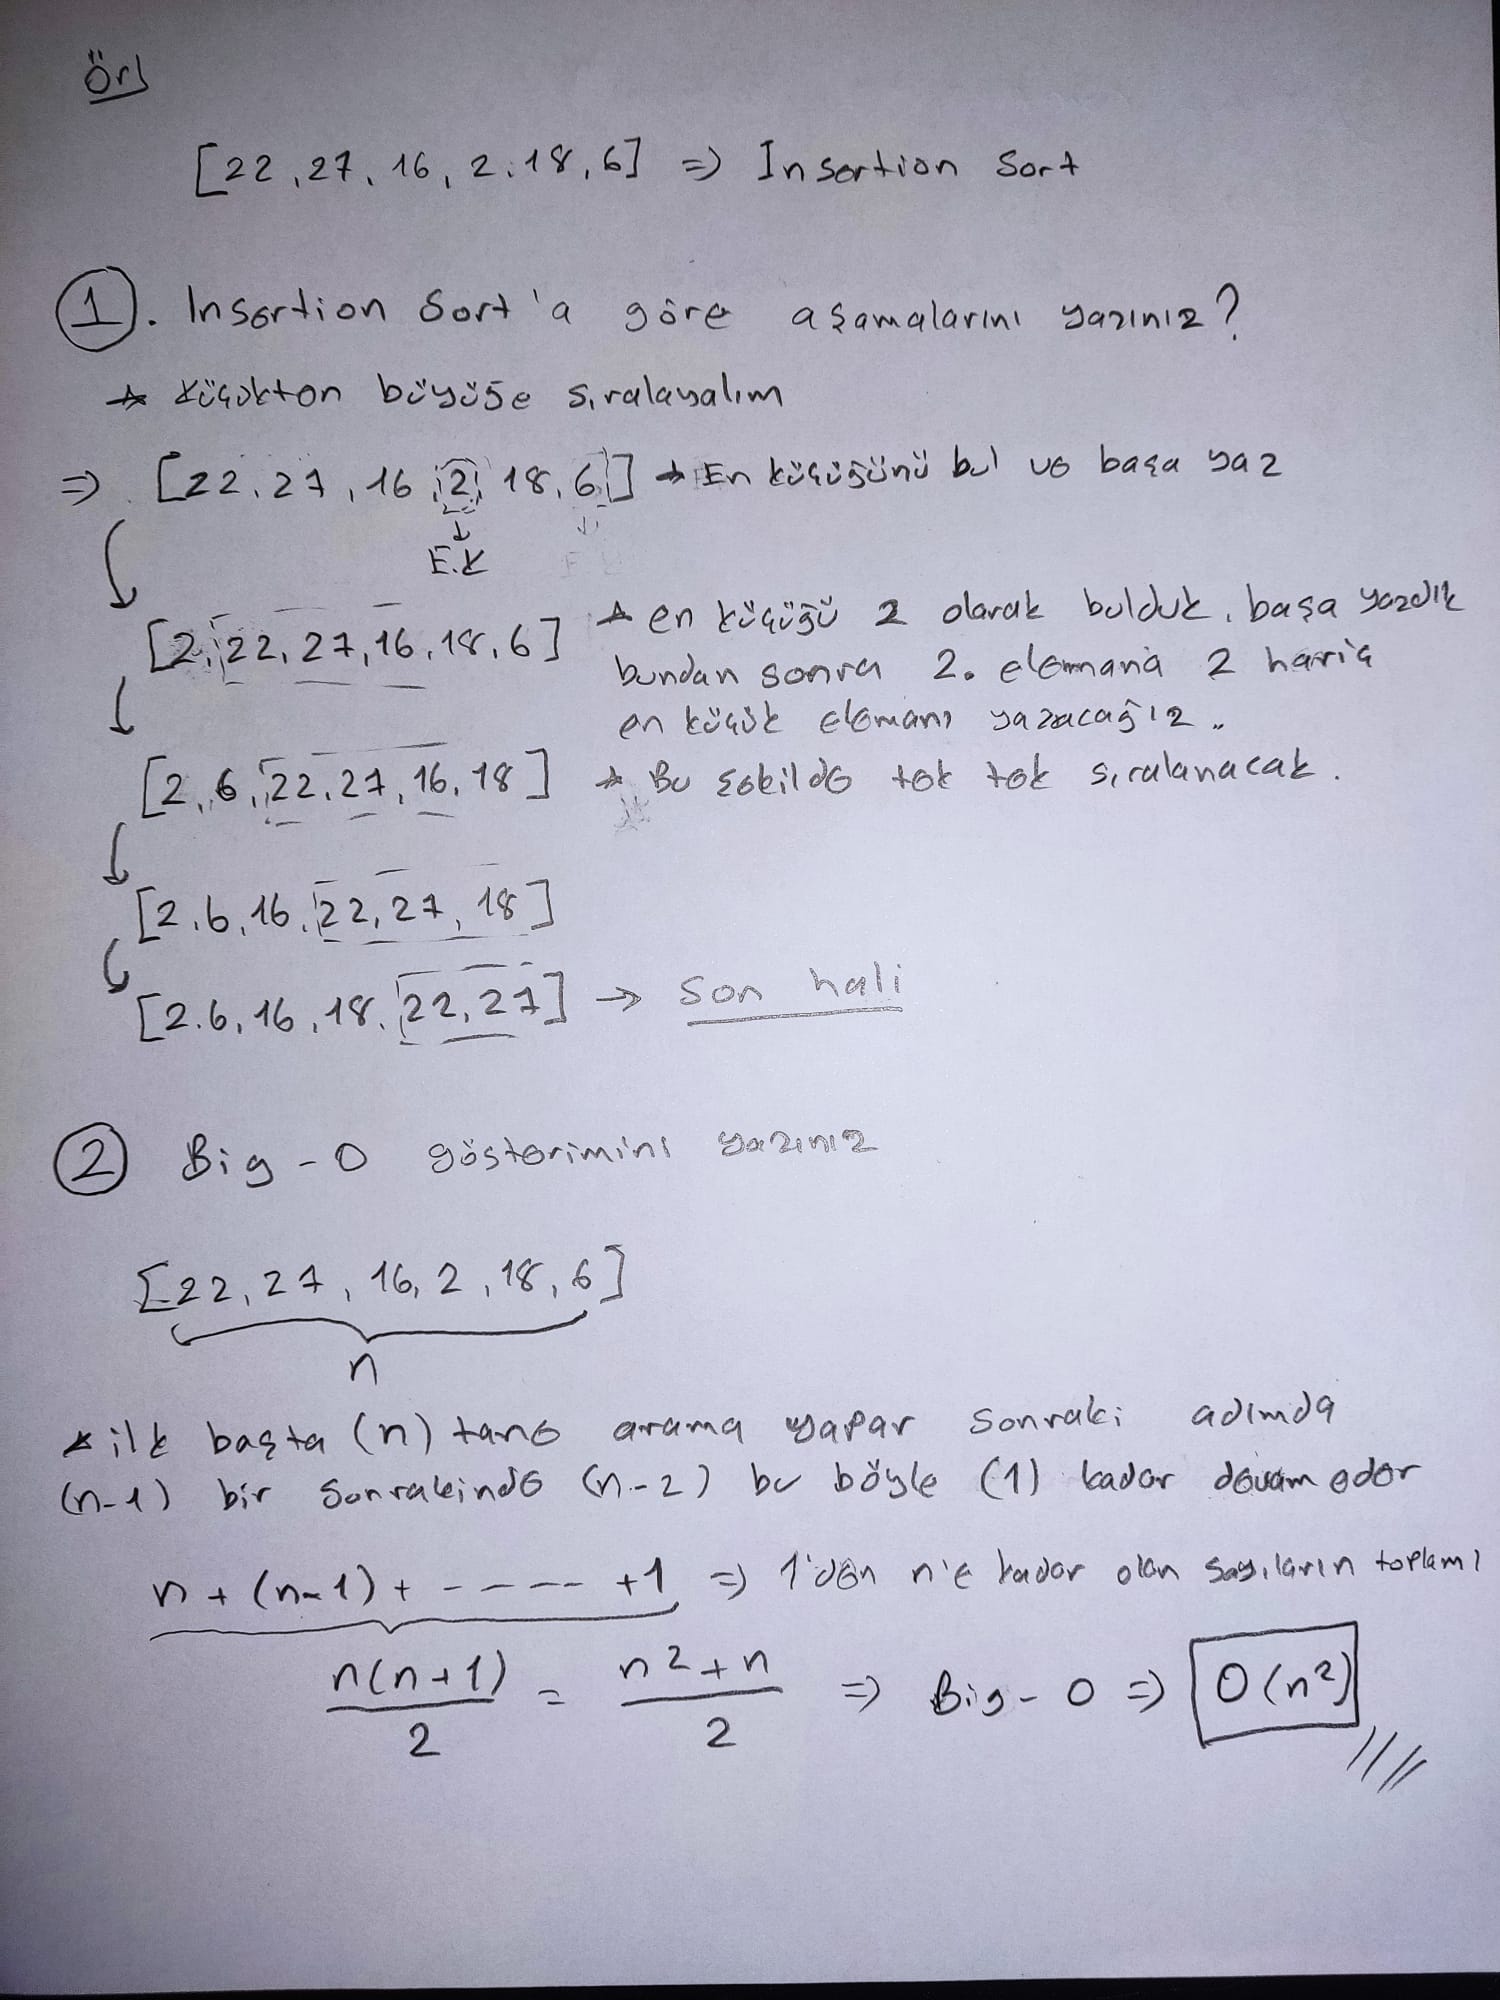 Ör/
[22, 27, 16, 2, 18, 6] => Insertion Sort
1. Insertion Sort'a göre aşamalarını yazınız?
* Küçükten büyüğe sıralayalım
=> [22, 27, 16, 2, 18, 6] * En küçüğünü bul ve başa yaz
E.K
[2, 22, 27, 16, 18, 6] * en küçüğü 2 olarak bulduk, başa yazdık
bundan sonra 2. elemana 2 hariç
en küçük elemanı yazacağız..
[2, 6, 22, 27, 16, 18] * Bu şekilde tek tek sıralanacak.
[2, 6, 16, 22, 27, 18]
[2, 6, 16, 18, 22, 27] → Son hali
2 Big-O gösterimini yazınız
[22, 27, 16, 2, 18, 6]
n
* ilk başta (n) tane arama yapar sonraki adımda
(n-1) bir sonrakinde (n-2) bu böyle (1) kadar devam eder
n + (n-1) + ----- +1 => 1'den n'e kadar olan sayıların toplamı
n(n+1)/2 = n²+n/2 => Big-O => O(n²)